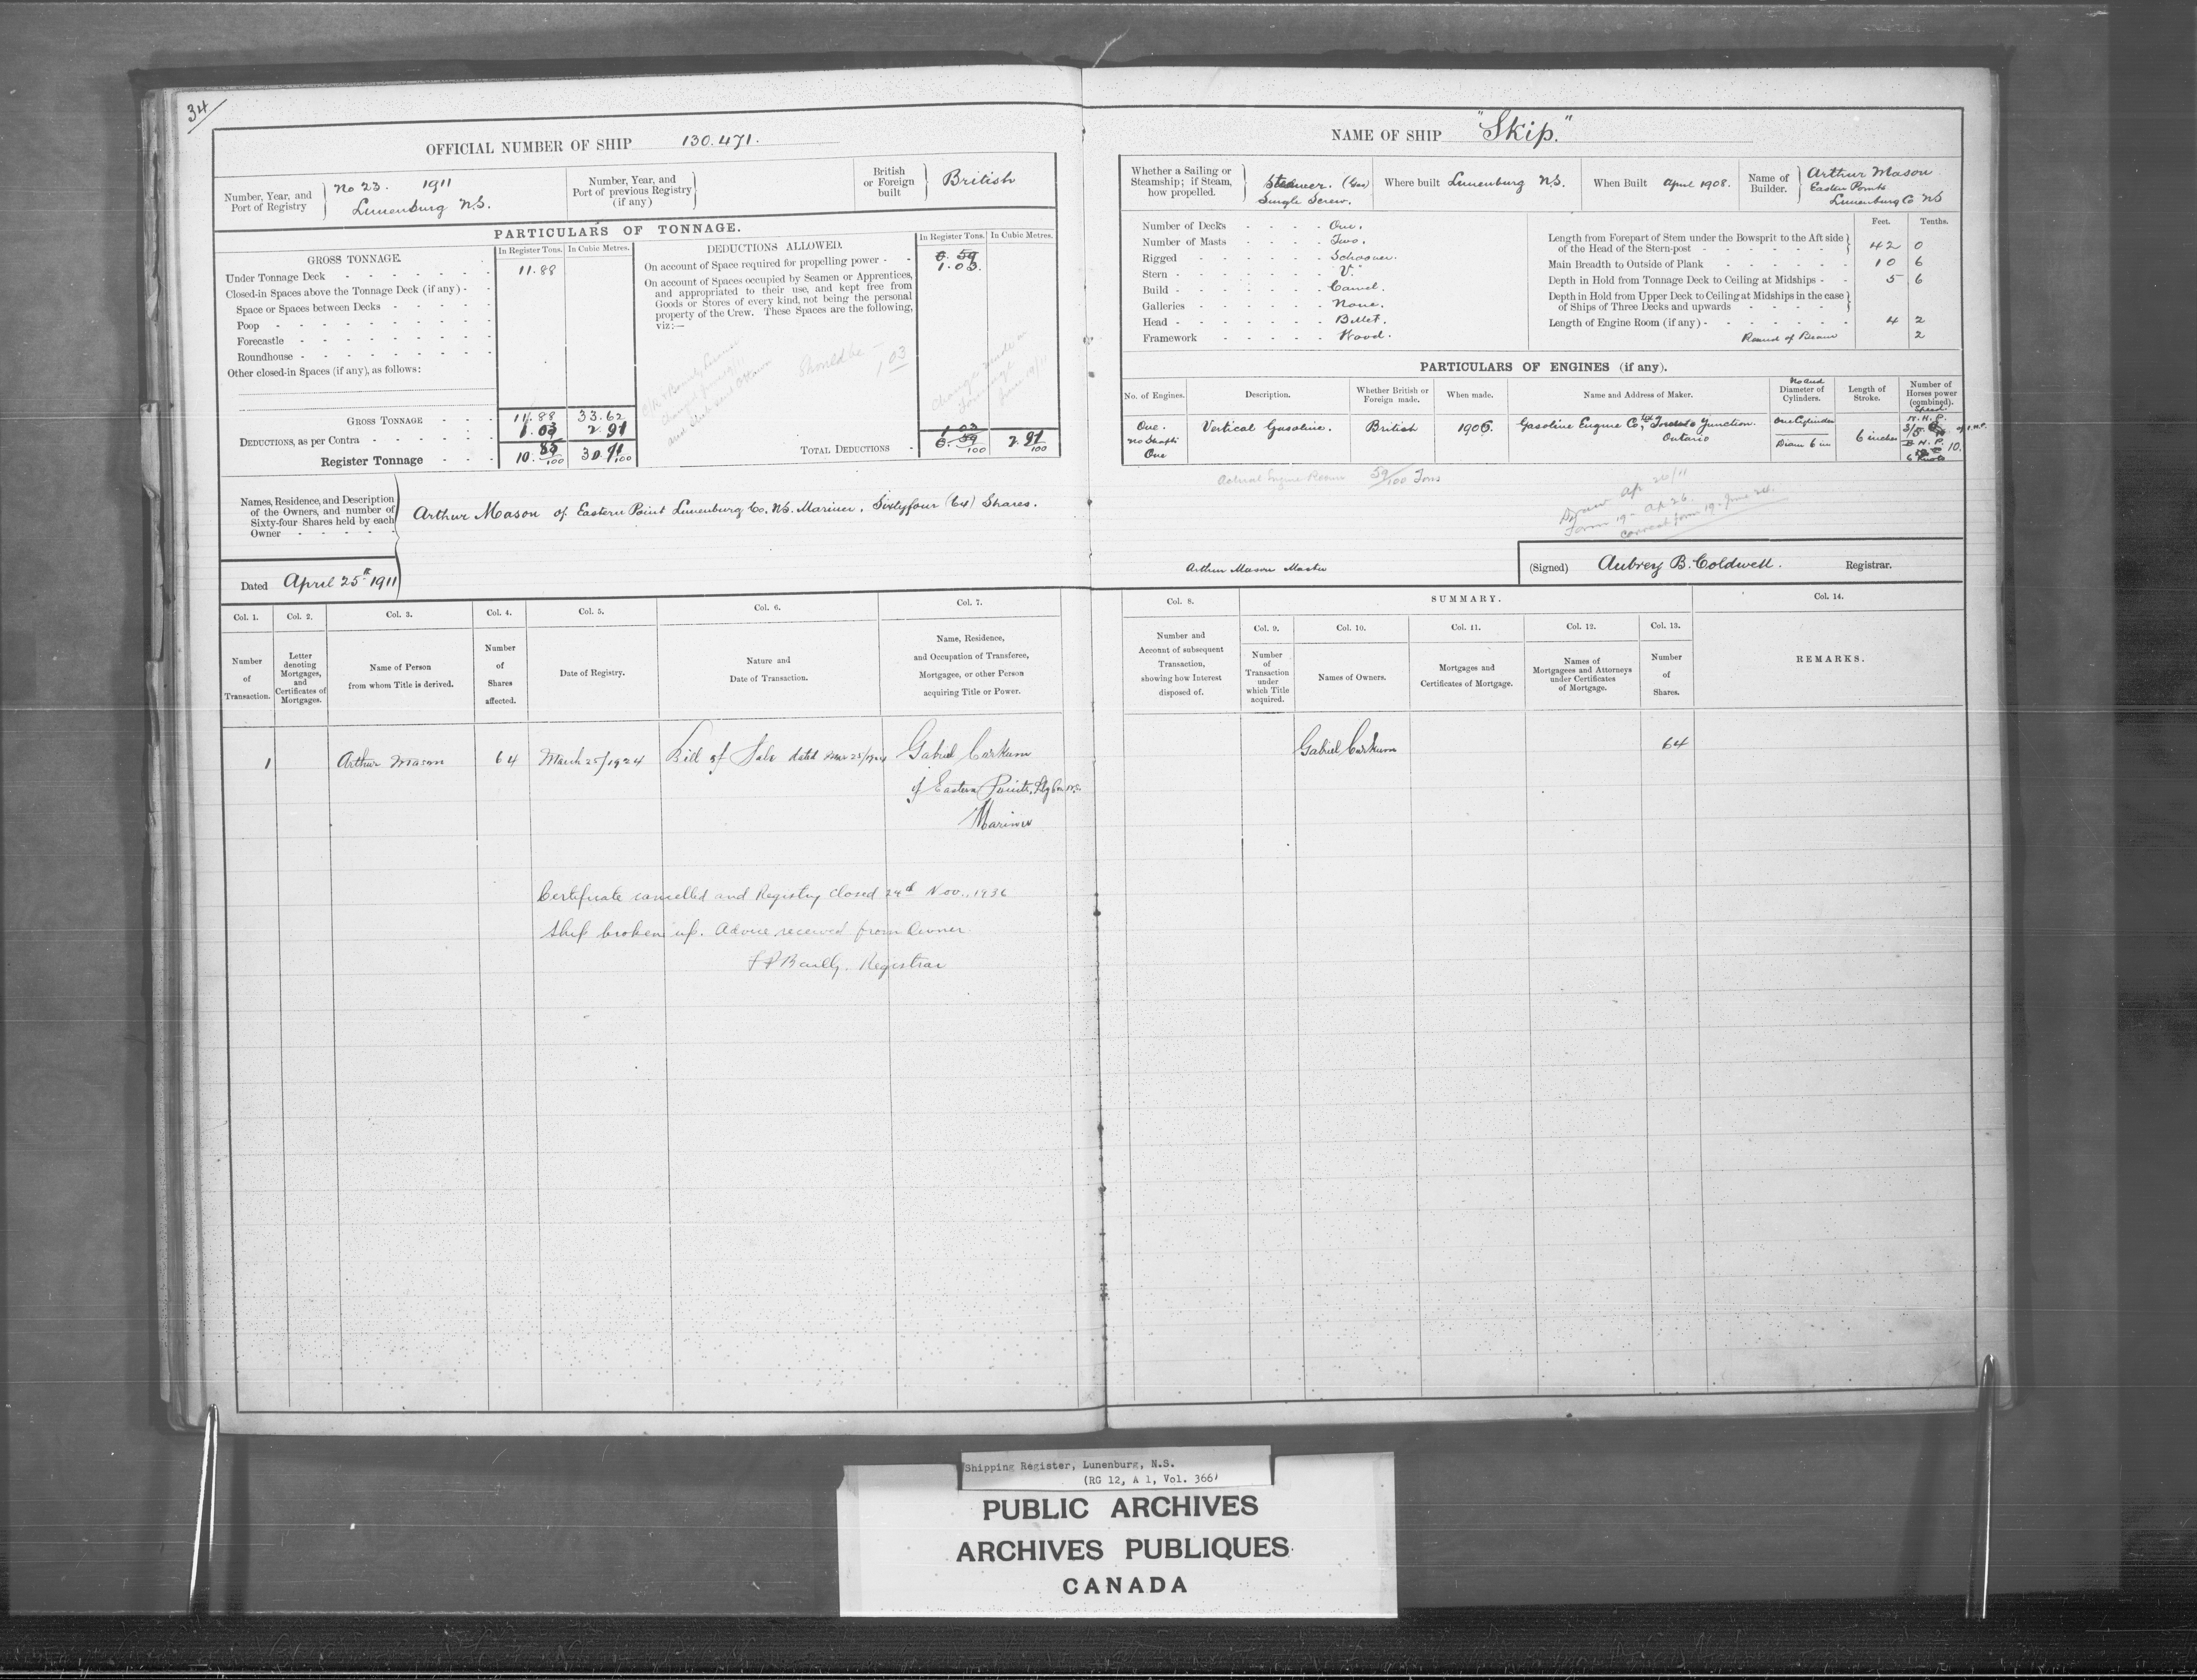 34
OFFICIAL NUMBER OF SHIP 130.471.
Number, Year, and Port of Registry
No 23. 1911
Lunenburg N.S.
Number, Year, and Port of previous Registry (if any)
British or Foreign built
British
PARTICULARS OF TONNAGE.
GROSS TONNAGE.
In Register Tons.
In Cubic Metres.
DEDUCTIONS ALLOWED.
In Register Tons.
In Cubic Metres.
Under Tonnage Deck 11.88
Closed-in Spaces above the Tonnage Deck (if any)
Space or Spaces between Decks
Poop
Forecastle
Roundhouse
Other closed-in Spaces (if any), as follows:
GROSS TONNAGE 11.88 33.62
DEDUCTIONS, as per Contra 1.03 2.91
Register Tonnage 10.85/100 30.71/100
On account of Space required for propelling power
0.59
1.03.
On account of Spaces occupied by Seamen or Apprentices,
and appropriated to their use, and kept free from
Goods or Stores of every kind, not being the personal
property of the Crew. These Spaces are the following,
viz:—
Should be 1.03
TOTAL DEDUCTIONS
1.03
0.59/100
2.91/100
Names, Residence, and Description
of the Owners, and number of
Sixty-four Shares held by each
Owner
Arthur Mason of Eastern Point Lunenburg Co. N.S. Mariner. Sixtyfour (64) Shares.
Dated April 25th 1911
NAME OF SHIP "Skip."
Whether a Sailing or Steamship; if Steam, how propelled.
Steamer. (Gas)
Single Screw.
Where built Lunenburg N.S.
When Built April 1908.
Name of Builder.
Arthur Mason
Eastern Points
Lunenburg Co NS
Number of Decks One.
Number of Masts Two.
Rigged Schooner.
Stern "V."
Build Carvel.
Galleries None.
Head Billet.
Framework Wood.
Feet. Tenths.
Length from Forepart of Stem under the Bowsprit to the Aft side
of the Head of the Stern-post 42 0
Main Breadth to Outside of Plank 10 6
Depth in Hold from Tonnage Deck to Ceiling at Midships 5 6
Depth in Hold from Upper Deck to Ceiling at Midships in the case
of Ships of Three Decks and upwards
Length of Engine Room (if any) 4 2
Round of Beam 2
PARTICULARS OF ENGINES (if any).
No. of Engines.
Description.
Whether British or Foreign made.
When made.
Name and Address of Maker.
No and Diameter of Cylinders.
Length of Stroke.
Number of Horses power (combined).
Speed
One.
No Shafts
One
Vertical Gasoline.
British
1906.
Gasoline Engine Co. Ltd Toronto Junction.
Ontario
One Cylinder
Diam 6 in
6 inches
N.H.P.
10.
6 Knots
Actual Engine Room 59/100 Tons
Form 19 - Ap 26.
Correct form 19. June 20.
Arthur Mason Master
(Signed) Aubrey B. Coldwell. Registrar.
Col. 1. Col. 2. Col. 3. Col. 4. Col. 5. Col. 6. Col. 7.
Number of Transaction.
Letter denoting Mortgages, and Certificates of Mortgages.
Name of Person from whom Title is derived.
Number of Shares affected.
Date of Registry.
Nature and Date of Transaction.
Name, Residence, and Occupation of Transferee, Mortgagee, or other Person acquiring Title or Power.
Col. 8.
SUMMARY.
Col. 9. Col. 10. Col. 11. Col. 12. Col. 13.
Col. 14.
Number and Account of subsequent Transaction, showing how Interest disposed of.
Number of Transaction under which Title acquired.
Names of Owners.
Mortgages and Certificates of Mortgage.
Names of Mortgagees and Attorneys under Certificates of Mortgage.
Number of Shares.
REMARKS.
1 Arthur Mason 64 March 25/1924 Bill of Sale dated Mar 25/1924 Gabriel Corkum
of Eastern Points, Lbg Co. N.S.
Mariner
Gabriel Corkum 64
Certificate cancelled and Registry Closed 24th Nov., 1936
Ship broken up. Advice received from Owner.
Registrar
Shipping Register, Lunenburg, N.S.
(RG 12, A 1, Vol. 366)
PUBLIC ARCHIVES
ARCHIVES PUBLIQUES
CANADA